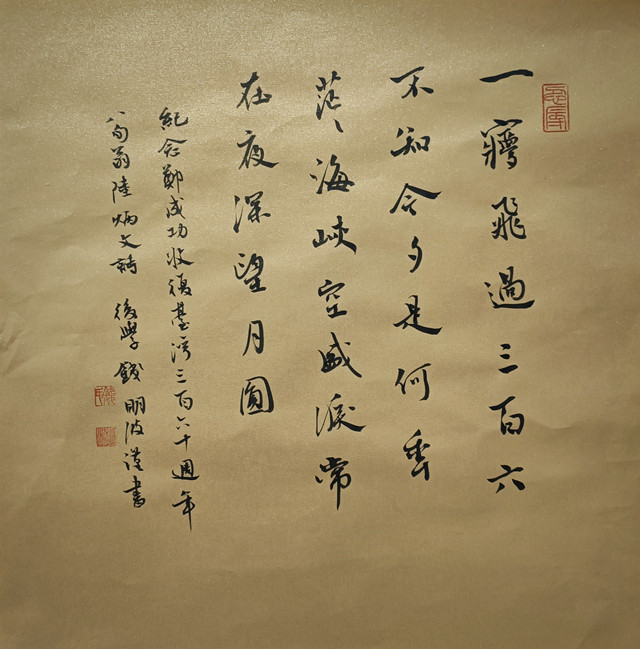 一 飛過三百六
不知今夕是何秊
茫〻海峽空盛淚常
在夜深望月圓
紀念鄭成功收復臺灣三百六十週年
八旬翁陸炳文詩 後學錢明波謹書